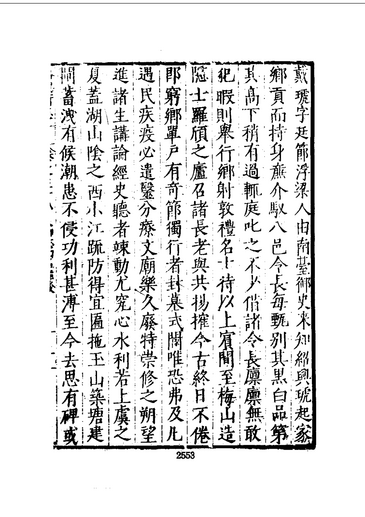 戴琥字廷節浮梁人由南臺御史來知紹興琥起家
鄉貢而持身廉介馭八邑令長每甄別其黑白品第
其高下稍有過輒庭叱之不少借諸令長廩廩無敢
犯暇則舉行鄉射敦禮名士待以上賓間至梅山造
隱士羅頎之廬召諸長老與共揚搉今古終日不倦
即窮鄉單戶有奇節獨行者封墓式閭唯恐弗及凡
遇民疾疫必遣醫分療文廟樂久廢特崇修之朔望
進諸生講論經史聽者竦動尤究心水利若上虞之
夏蓋湖山陰之西小江疏防得宜匾拖玉山築塘建
閘蓄洩有候潮患不侵功利甚溥至今去思有碑或
2553